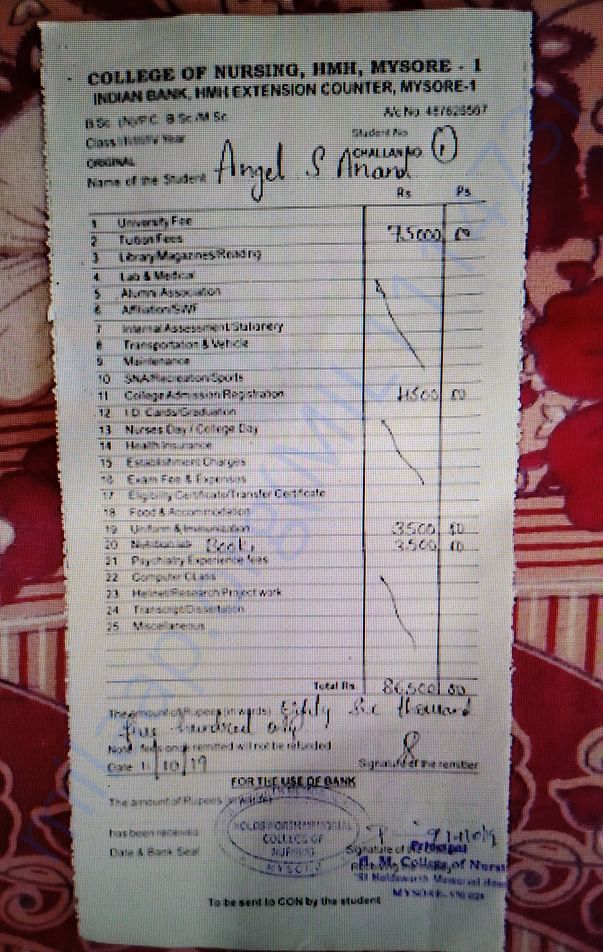 COLLEGE OF NURSING, HMH, MYSORE - 1
INDIAN BANK, HMH EXTENSION COUNTER, MYSORE-1
B Sc (N)/P.C. B Sc/M Sc A/c No 487626507
Class Year Student No
ORIGINAL CHALLAN NO. 1
Name of the Student Angel S Anand
Rs Ps
1 University Fee
2 Tution Fees 75000 00
3 Library/Magazines/Reading
4 Lab & Medical
5 Alumni Association
6 Affiliation/SWF
7 Internal Assessment Stationery
8 Transportation & Vehicle
9 Maintenance
10 SNA/Recreation/Sports
11 College Admission Registration 4500 00
12 I.D. Cards/Graduation
13 Nurses Day / College Day
14 Health Insurance
15 Establishment Charges
16 Exam Fee & Expenses
17 Eligibility Certificate/Transfer Certificate
18 Food & Accommodation
19 Uniform & Immunization 3500 00
20 Nutrition lab 3500 00
21 Psychiatry Experience fees
22 Computer Class
23 Helinet/Research Project work
24 Transcript/Dissertation
25 Miscellaneous
Total Rs 86500 00
The amount of Rupees (in words) Eighty Six thousand
five hundred only
Note: Fees once remitted will not be refunded
Date 10/19 Signature of the remitter
FOR THE USE OF BANK
The amount of Rupees in words
has been received
Date & Bank Seal
HOLDSWORTH MEMORIAL
COLLEGE OF
NURSING
MYSORE
Signature of
Principal
H. M. College of Nursing
Holdsworth Memorial
MYSORE
To be sent to CON by the student